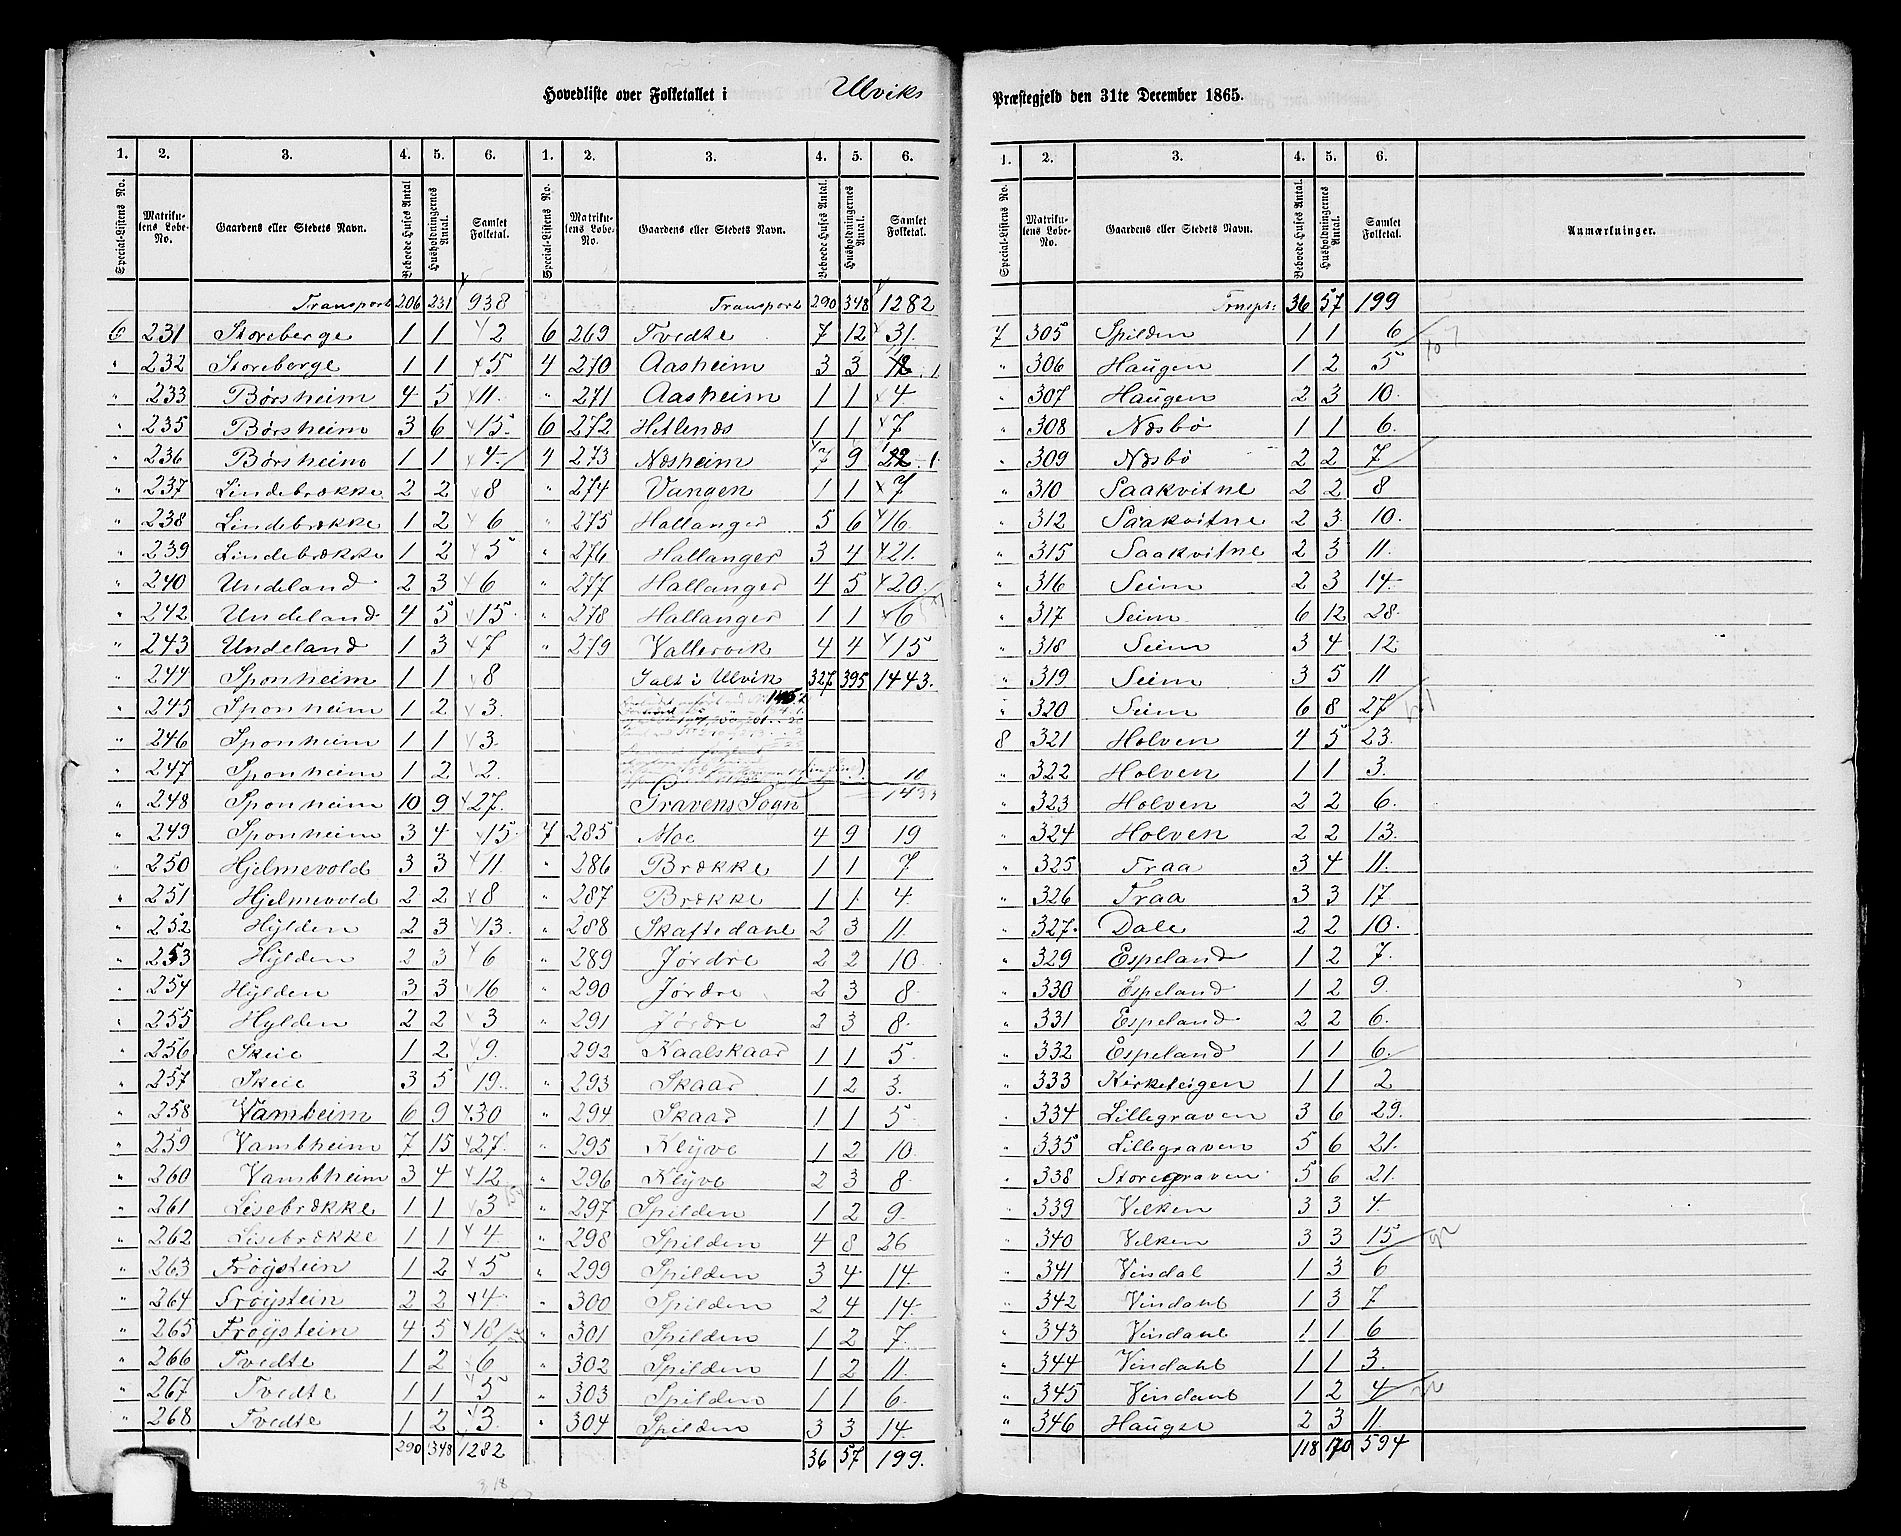 Hovedliste over Folketallet i Ulviks Præstegjeld den 31te December 1865.
1. 2. 3. 4. 5. 6.
Special-Listens No. Matrikulens Løbe-No. Gaardens eller Stedets Navn. Beboede Huses Antal Husholdningernes Antal. Samlet Folketal.
Transport 206 231 938
6 231 Storeberge 1 1 2
" 232 Storeberge 1 1 5
" 233 Børsheim 4 5 11.
" 235 Børsheim 3 6 15.
" 236 Børsheim 1 1 4.
" 237 Lindebrække 2 2 8
" 238 Lindebrække 1 2 6
" 239 Lindebrække 1 2 5
" 240 Undeland 2 3 6
" 242 Undeland 4 5 15.
" 243 Undeland 1 3 7
" 244 Sponheim 1 1 8
" 245 Sponheim 1 2 3.
" 246 Sponheim 1 1 3.
" 247 Sponheim 1 2 2.
" 248 Sponheim 10 9 27.
" 249 Sponheim 3 4 15.
" 250 Hjelmevold 3 3 11
" 251 Hjelmevold 2 2 8
" 252 Hylden 2 3 13.
" 253 Hylden 2 3 6
" 254 Hylden 3 3 16
" 255 Hylden 2 2 3
" 256 Skeie 1 2 9.
" 257 Skeie 3 5 19.
" 258 Vambeim 6 9 30
" 259 Vambheim 7 15 27.
" 260 Vambheim 3 4 12
" 261 Lisebrække 1 1 3
" 262 Lisebrække 1 1 4
" 263 Frøystein 1 2 5
" 264 Frøystein 2 2 4.
" 265 Frøystein 4 5 18
" 266 Tvedte 1 2 6
" 267 Tvedte 1 1 5
" 268 Tvedte 1 2 3.
290 348 1282
318
1. 2. 3. 4. 5. 6.
Special-Listens No. Matrikulens Løbe-No. Gaardens eller Stedets Navn. Beboede Huses Antal. Husholdningernes Antal. Samlet Folketal.
Transport 290 348 1282
6 269 Tvedte 7 12 31.
4 270 Aasheim 3 3
" 271 Aasheim 1 1 4.
6 272 Hetlenæs 1 1 7
4 273 Næsheim 7 9
" 274 Vangen 1 1 7
" 275 Hallanger 5 6 16.
" 276 Hallanger 3 4 21.
" 277 Hallanger 4 5 20.
" 278 Hallanger 1 1 6
" 279 Vallervik 4 4 15
Ialt i Ulvik 327 395 1443.
Gravens Sogn
7 285 Moe 4 9 19
" 286 Brække 1 1 7
" 287 Brække 1 1 4.
" 288 Skaftedahl 2 3 11
" 289 Jørdre 2 2 10.
" 290 Jørdre 2 3 8.
" 291 Jørdre 2 3 8.
292 Kaalskaar 1 1 5.
" 293 Skaar 1 2 3.
" 294 Skaar 1 1 5
" 295 Kløve 1 2 10
" 296 Kløve 2 3 8
" 297 Spilden 1 2 9.
" 298 Spilden 4 8 26
" 299 Spilden 3 4 14.
" 300 Spilden 2 4 14.
" 301 Spilden 1 2 7.
" 302 Spilden 1 2 11.
" 303 Spilden 1 1 6.
" 304 Spilden 3 3 14.
36 57 199.
1. 2. 3. 4. 5. 6.
Special-Listens No. Matrikulens Løbe-No. Gaardens eller Stedets Navn. Beboede Huses Antal. Husholdningernes Antal. Samlet Folketal. Anmærkninger.
Trnspt. 36 57 199
7 305 Spilden 1 1 6
" 306 Haugen 1 2 5
" 307 Haugen 2 3 10.
" 308 Næsbø 1 1 6.
" 309 Næsbø 2 2 7
" 310 Saakvitne 2 2 8
" 312 Saakvitne 2 3 10.
" 315 Saakvitne 2 3 11.
" 316 Seim 2 3 14.
" 317 Seim 6 12 28.
" 318 Seim 3 4 12
" 319 Seim 3 5 11
" 320 Seim 6 8 27
8 321 Holven 4 5 23.
" 322 Holven 1 1 3.
" 323 Holven 2 2 6.
" 324 Holven 2 2 13.
" 325 Traa 3 4 11.
" 326 Traa 3 3 17.
" 327. Dale 2 2 10.
" 329 Espeland 1 2 7.
" 330 Espeland 1 2 9.
" 331 Espeland 2 2 6.
" 332 Espeland 1 1 6.
" 333 Kirketeigen 1 1 2
" 334 Lillegraven 3 6 29.
" 335 Lillegraven 5 6 21.
" 338 Storegraven 5 6 21.
" 339 Velken 3 3 4.
" 340 Velken 3 3 15
" 341 Vindal 1 3 6
" 342 Vindahl 1 3 7
" 343 Vindahl 1 1 6
" 344 Vindahl 1 1 3.
" 345 Vindahl 1 2 4
" 346 Haugse 2 3 11.
118 170 594